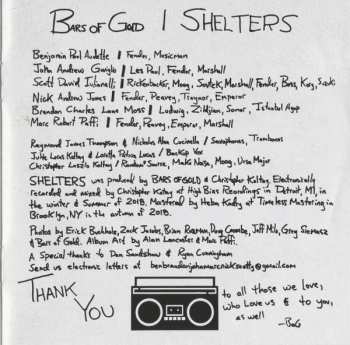 BARS OF GOLD | SHELTERS
Benjamin Paul Audette | Fender, Musicman
John Andrew Gaviglio | Les Paul, Fender, Marshall
Scott David Iulianelli | Rickenbacker, Moog, Suntek, Marshall, Fender, Boss, Korg, Suzuki
Nick Andrew Jones | Fender, Peavey, Traynor, Emperor
Brandon Charles Lane Moss | Ludwig, Zildjian, Sonor, Istanbul Agop
Marc Robert Paffi | Fender, Peavey, Emperor, Marshall
Raymond James Thompson & Nicholas Alan Cucinella / Saxophones, Trombones
Julie Louis Koltay & Loretta Petria Lucas / Backup Vox
Christopher Laszlo Koltay / Roadkill Source, Mako Nasa, Moog, Ursa Major
SHELTERS was produced by BARS OF GOLD & Christopher Koltay. Electronically
recorded and mixed by Christopher Koltay at High Bias Recordings in Detroit, MI, in
the winter & summer of 2018. Mastered by Heba Kadry at Timeless Mastering in
Brooklyn, NY in the autumn of 2018.
Photos by Erick Buchholz, Zack Jacobs, Brian Rozman, Doug Coombe, Jeff Milo, Greg Siemasz
& Bars of Gold. Album Art by Alan Lancaster & Marc Paffi.
A Special thanks to Dan Sandshaw & Ryan Cunningham
Send us electronic letters at benbrandonjohnmarcnickscotty@gmail.com
THANK YOU
to all those we love,
who love us & to you,
as well
-BoG